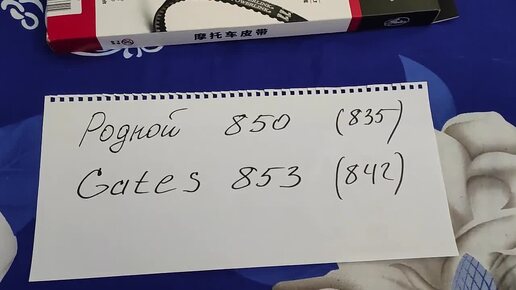 POWERLINK
摩托车皮带
Родной 850 (835)
Gates 853 (842)